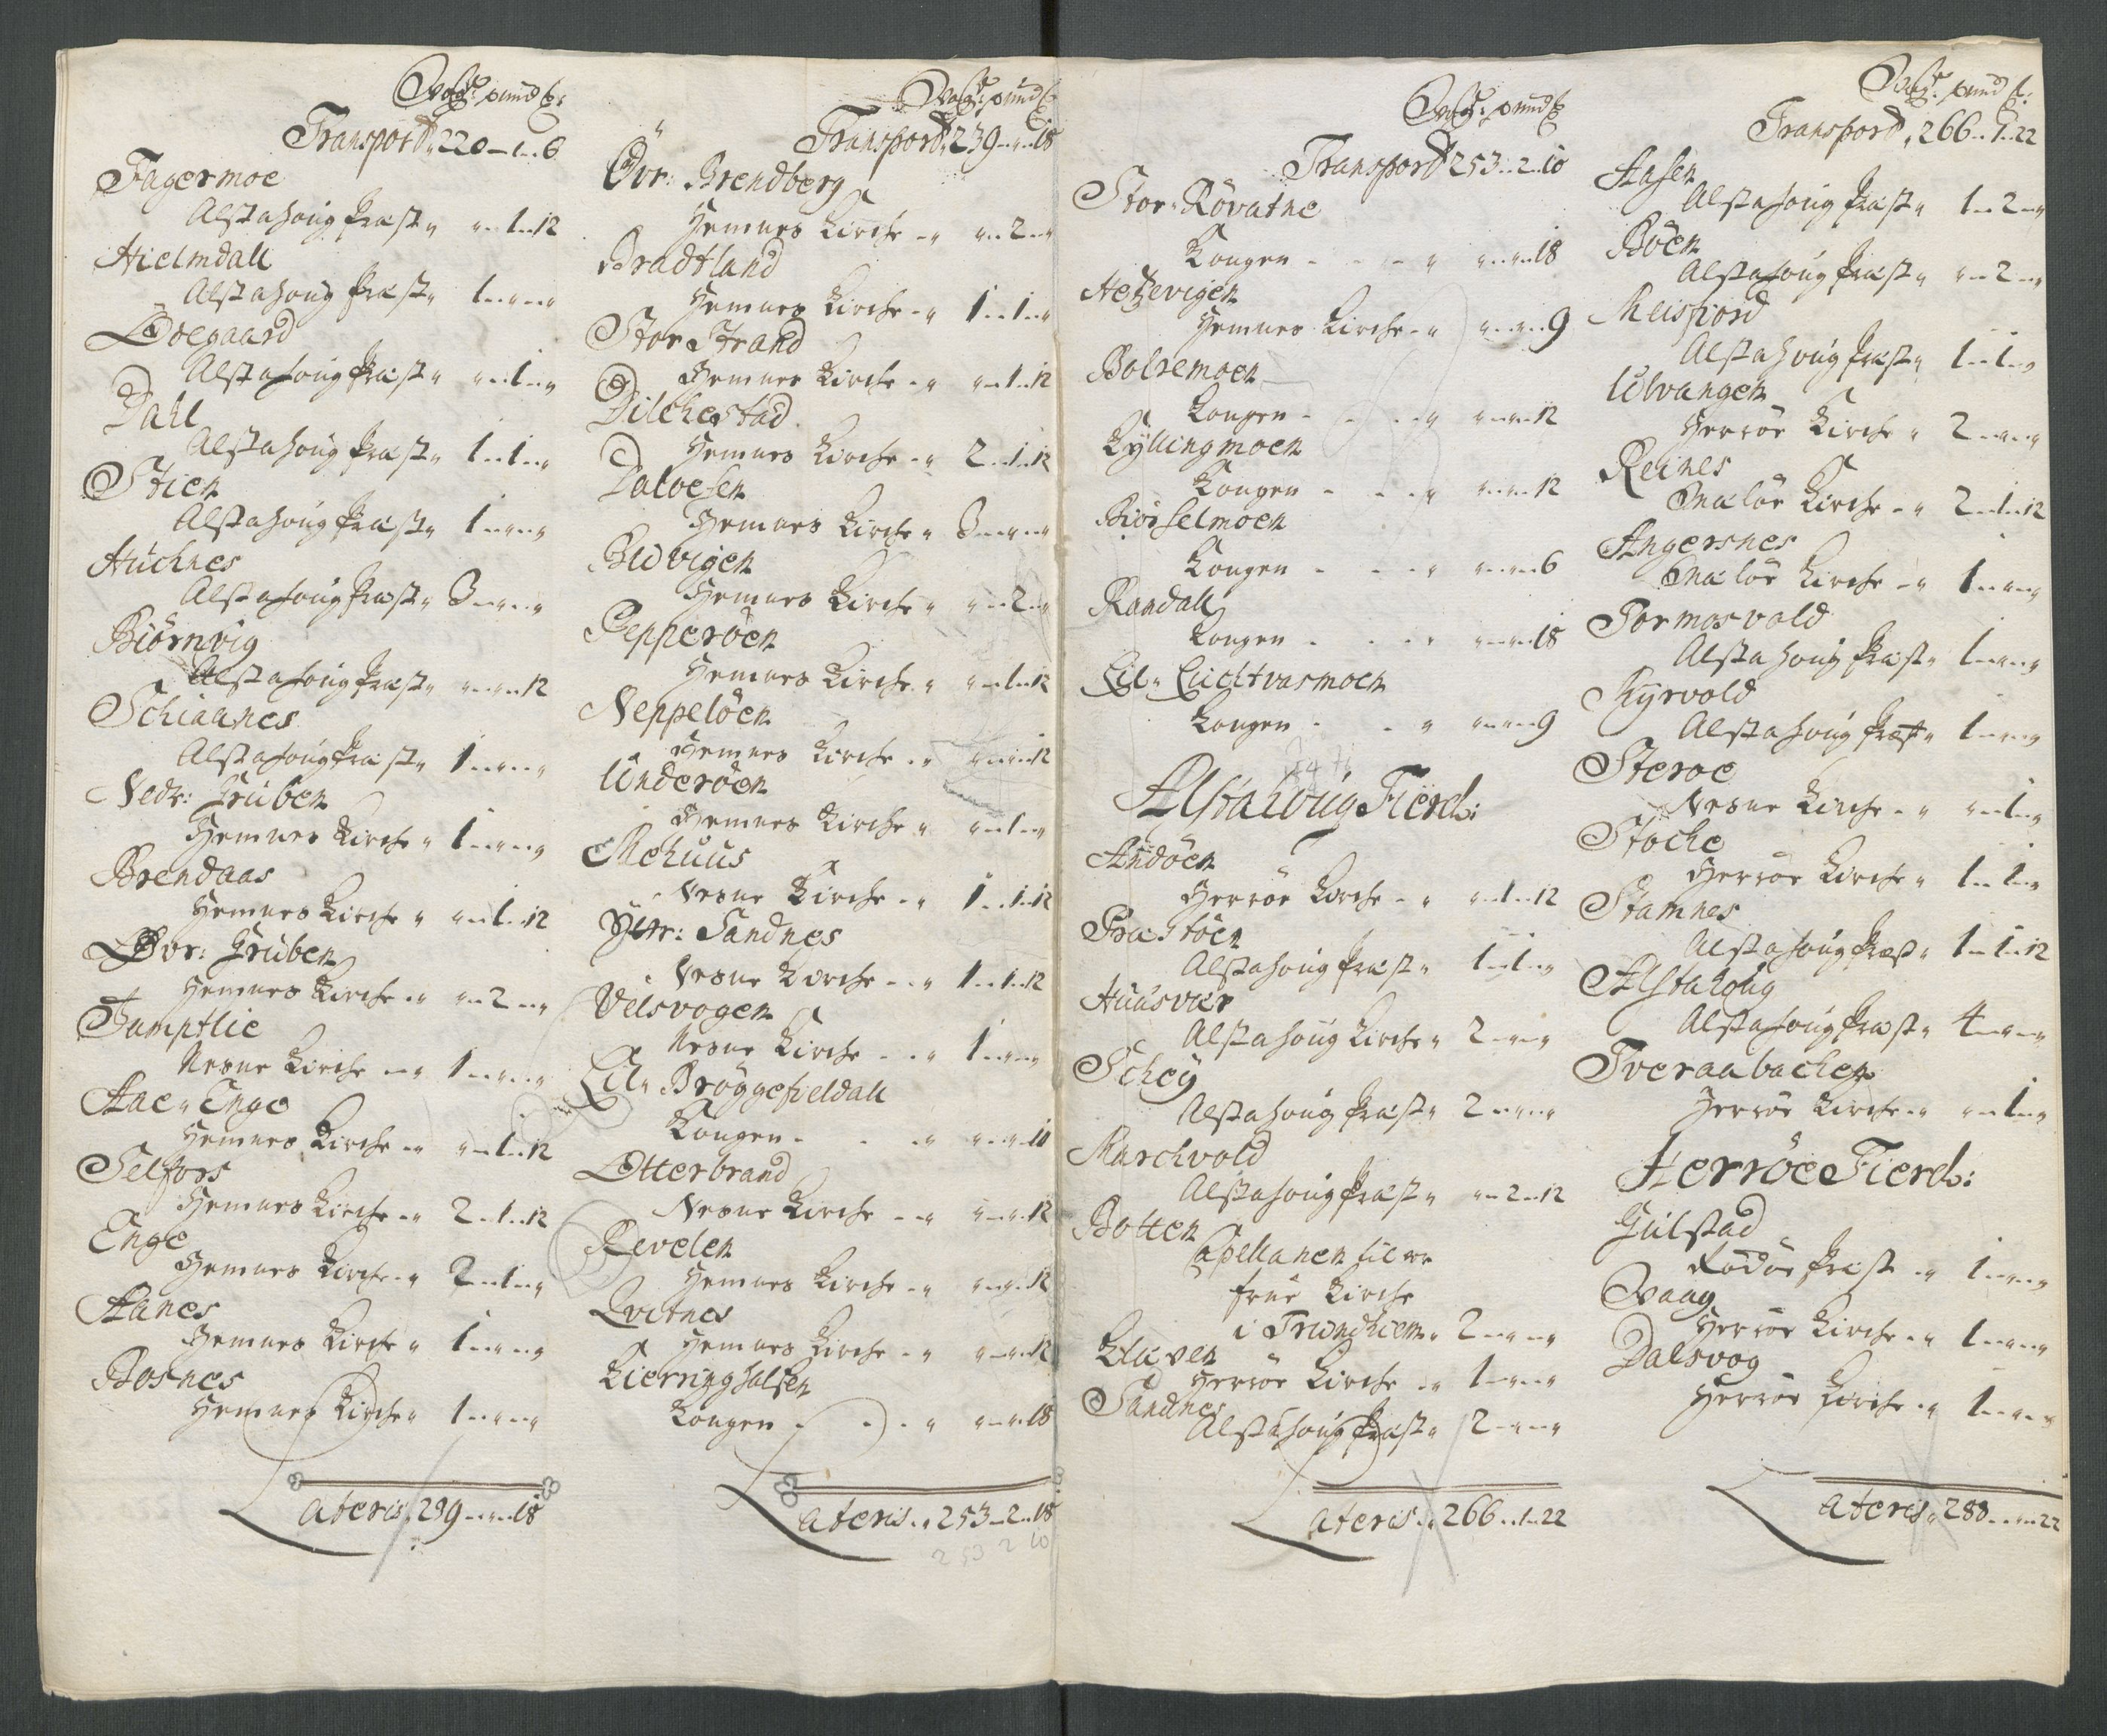 Wog: pund ℔:
Transport „ 220 „ 1 „ 6
Fagermoe
Alstahoug Præst „ „ 1 „ 12
Hielmdall
Alstahoug Præst „ 1 „ „
Ödegaard
Alstahoug Præst „ „ 1 „
Dahl
Alstahoug Præst „ 1 „ 1 „
Stien
Alstahoug Præst „ 1 „ „
Huchnes
Alstahoug Præst „ 3 „ „
Biörnvig
Alstahoug Præst „ „ „ 12
Schiaanes
Alstahoug Præst „ 1 „ „
Nedr: Gruben
Hemnes Kirche „ 1 „ „
Brendaas
Hemnes Kirche „ „ 1 „ 12
Övr: Gruben
Hemnes Kirche „ „ 2 „
Jamptlie
Nesne Kirche „ 1 „ „
Aae „ Enge
Hemnes Kirche „ „ 1 „ 12
Selfors
Hemnes Kirche „ 2 „ 1 „ 12
Enge
Hemnes Kirche „ 2 „ 1 „
Aanes
Hemnes Kirche „ 1 „ „
Bosnes
Hemnes Kirche „ 1 „ „
Lateris „ 239 „ „ 18
Wog: pund ℔
Transport „ 239 „ „ 18
Övr: Brendberg
Hemnes Kirche „ „ 2 „
Bradtland
Hemnes Kirche „ 1 „ 1 „
Stor Strand
Hemnes Kirche „ „ 1 „ 12
Dilchestad
Hemnes Kirche „ 2 „ 1 „ 12
Dalosen
Hemnes Kirche „ 3 „ „
Bidvigen
Hemnes Kirche „ „ 2 „
Lepperöen
Hemnes Kirche „ „ 1 „ 12
Neppelöen
Hemnes Kirche „ „ „ 12
Underöen
Hemnes Kirche „ „ 1 „
Mehuus
Nesne Kirche „ 1 „ 1 „ 12
Yttr: Sandnes
Nesne Kirche „ 1 „ 1 „ 12
Velsvogen
Nesne Kirche „ 1 „ „
Lil „ Bröggefieldall
Kongen „ „ „ 10
Otterbrand
Nesne Kirche „ „ „ 12
Revelen
Hemnes Kirche „ „ „ 12
Qvitnes
Hemnes Kirche „ „ „ 12
Kierringhalsen
Kongen „ „ „ 18
Lateris „ 253 „ 2 „ 18
253 2 10
Wog: pund ℔
Transport 253 „ 2 „ 10
Stor „ Rövatne
Kongen „ „ „ 18
Hetzevigen
Hemnes Kirche „ „ „ 9
Bolremoen
Kongen „ „ „ 12
Kyllingmoen
Kongen „ „ „ 12
Biörselmoen
Kongen „ „ „ 6
Randall
Kongen „ „ „ 18
Lil „ Luchtvasmoen
Kongen „ „ „ 9
Alstahoug Fierd:
Andöen
Herröe Kirche „ „ 1 „ 12
Præstöen
Alstahoug Præst „ 1 „ 1 „
Huusvær
Alstahoug Kirche „ 2 „ „
Schey
Alstahoug Præst „ 2 „ „
Marchvold
Alstahoug Præst „ „ 2 „ 12
Botten
Capellanen til vor
frue Kirche
i Trundhiem „ 2 „ „
Klaven
Herröe Kirche „ 1 „ „
Sandnes
Alstahoug Præst „ 2 „ „
Lateris „ 266 „ 1 „ 22
Wog: pund ℔:
Transport „ 266 „ 1 „ 22
Aasen
Alstahoug Præst „ 1 „ 2 „
Böen
Alstahoug Præst „ „ 2 „
Meisfiord
Alstahoug Præst „ 1 „ 1 „
Ulvangen
Herröe Kirche „ 2 „ „
Reines
Dnælöe Kirche „ 2 „ 1 „ 12
Angersnes
Dnælöe Kirche „ 1 „ „
Tormosvold
Alstahoug Præst „ 1 „ „
Kyrvold
Alstahoug Præst „ 1 „ „
Steroe
Nesne Kirche „ „ 1 „
Stoche
Herröe Kirche „ 1 „ 1 „
Stamnes
Alstahoug Præst „ 1 „ 1 „ 12
Alstahoug
Alstahoug Præst „ 4 „ „
Tveraabachen
Herröe Kirche „ „ 1 „
Herröe Fierd:
Gulstad
Rödöe Præst „ 1 „ „
Waag
Herröe Kirche „ 1 „ „
Dalsvog
Herröe Kirche „ 1 „ „
Lateris „ 288 „ „ 22